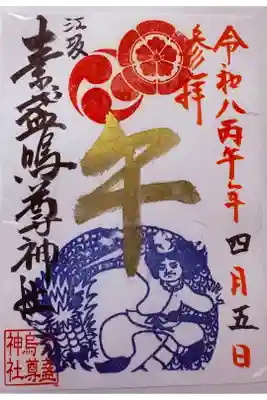 令和八丙午年
四月五日
参拝
午
江坂
素盞嗚尊神社
素盞
烏尊
神社